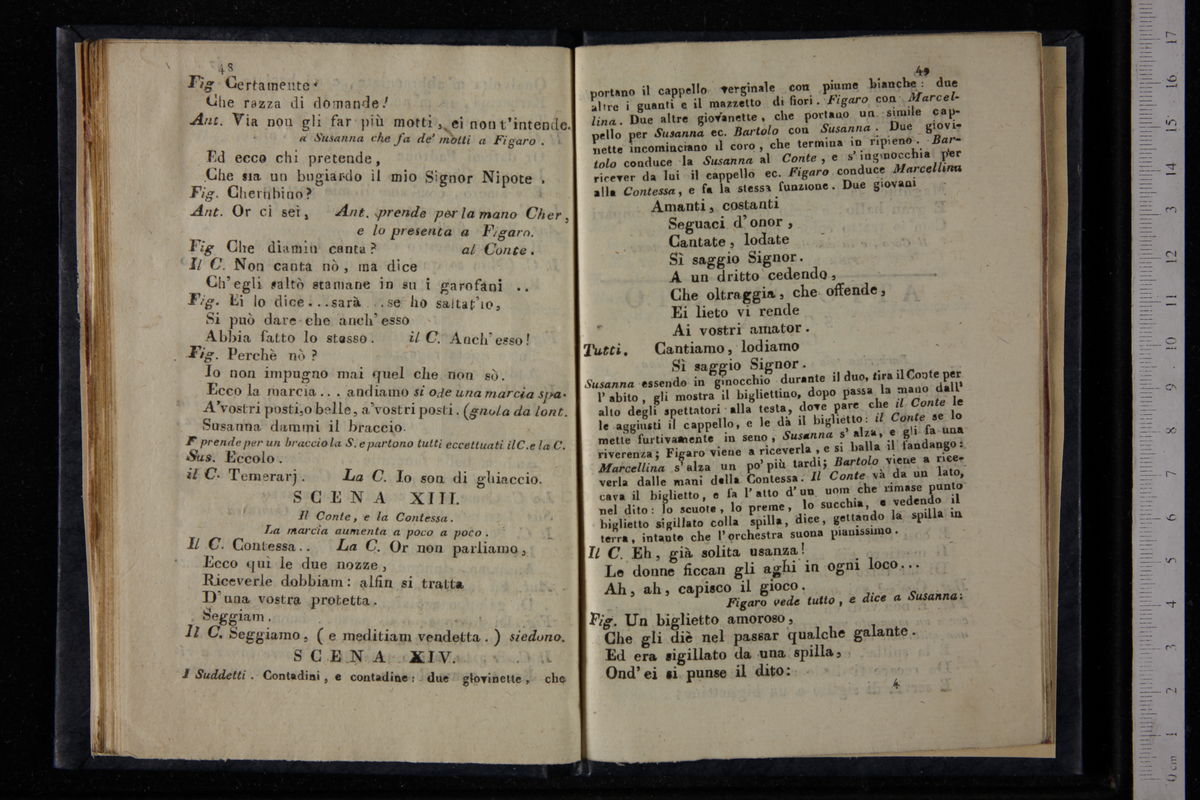 48
Fig Certamente.
Che razza di domande!
Ant. Via non gli far più motti, ei non t'intende.
a Susanna che fa de' motti a Figaro.
Ed ecco chi pretende,
Che sia un bugiardo il mio Signor Nipote.
Fig. Cherubino?
Ant. Or ci sei, Ant. prende per la mano Cher,
e lo presenta a Figaro.
Fig Che diamin canta? al Conte.
Il C. Non canta nò, ma dice
Ch'egli saltò stamane in su i garofani ..
Fig. Ei lo dice...sarà ..se ho saltat'io,
Si può dare che anch'esso
Abbia fatto lo stesso. il C. Anch'esso!
Fig. Perchè nò?
Io non impugno mai quel che non sò.
Ecco la marcia... andiamo si ode una marcia spa-
A'vostri posti,o belle, a'vostri posti. (gnuola da lont.
Susanna dammi il braccio.
F prende per un braccio la S. e partono tutti eccettuati il C. e la C.
Sus. Eccolo.
il C. Temerarj. La C. Io son di ghiaccio.
SCENA XIII.
Il Conte, e la Contessa.
La marcia aumenta a poco a poco.
Il C. Contessa.. La C. Or non parliamo,
Ecco quì le due nozze,
Riceverle dobbiam: alfin si tratta
D'una vostra protetta.
Seggiam.
Il C. Seggiamo, (e meditiam vendetta.) siedono.
SCENA XIV.
I Suddetti. Contadini, e contadine: due giovinette, che
49
portano il cappello verginale con piume bianche: due
altre i guanti e il mazzetto di fiori. Figaro con Marcel-
lina. Due altre giovanette, che portano un simile cap-
pello per Susanna ec. Bartolo con Susanna. Due giovi-
nette incominciano il coro, che termina in ripieno. Bar-
tolo conduce la Susanna al Conte, e s'inginocchia per
ricever da lui il cappello ec. Figaro conduce Marcellina
alla Contessa, e fa la stessa funzione. Due giovani
Amanti, costanti
Seguaci d'onor,
Cantate, lodate
Sì saggio Signor.
A un dritto cedendo,
Che oltraggia, che offende,
Ei lieto vi rende
Ai vostri amator.
Tutti. Cantiamo, lodiamo
Sì saggio Signor.
Susanna essendo in ginocchio durante il duo, tira il Conte per
l'abito, gli mostra il bigliettino, dopo passa la mano dall'
alto degli spettatori alla testa, dove pare che il Conte le
le aggiusti il cappello, e le dà il biglietto: il Conte se lo
mette furtivamente in seno, Susanna s'alza, e gli fa una
riverenza; Figaro viene a riceverla, e si balla il fandango:
Marcellina s'alza un po' più tardi; Bartolo viene a rice-
verla dalle mani della Contessa. Il Conte và da un lato,
cava il biglietto, e fa l'atto d'un uom che rimase punto
nel dito: lo scuote, lo preme, lo succhia, e vedendo il
biglietto sigillato colla spilla, dice, gettando la spilla in
terra, intanto che l'orchestra suona pianissimo.
Il C. Eh, già solita usanza!
Le donne ficcan gli aghi in ogni loco...
Ah, ah, capisco il gioco.
Figaro vede tutto, e dice a Susanna:
Fig. Un biglietto amoroso,
Che gli diè nel passar qualche galante.
Ed era sigillato da una spilla,
Ond'ei si punse il dito:
4
0 cm 1 2 3 4 5 6 7 8 9 10 11 12 13 14 15 16 17